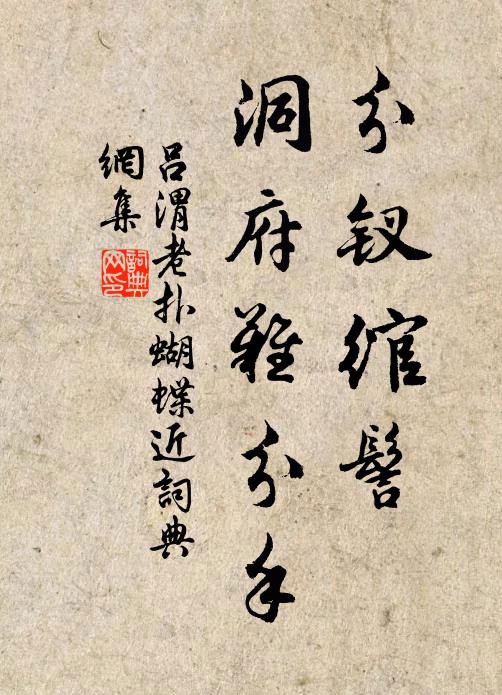 分钗绾髻
洞府難分手
吕渭老扑蝴蝶近詞典
網集
詞典
网印